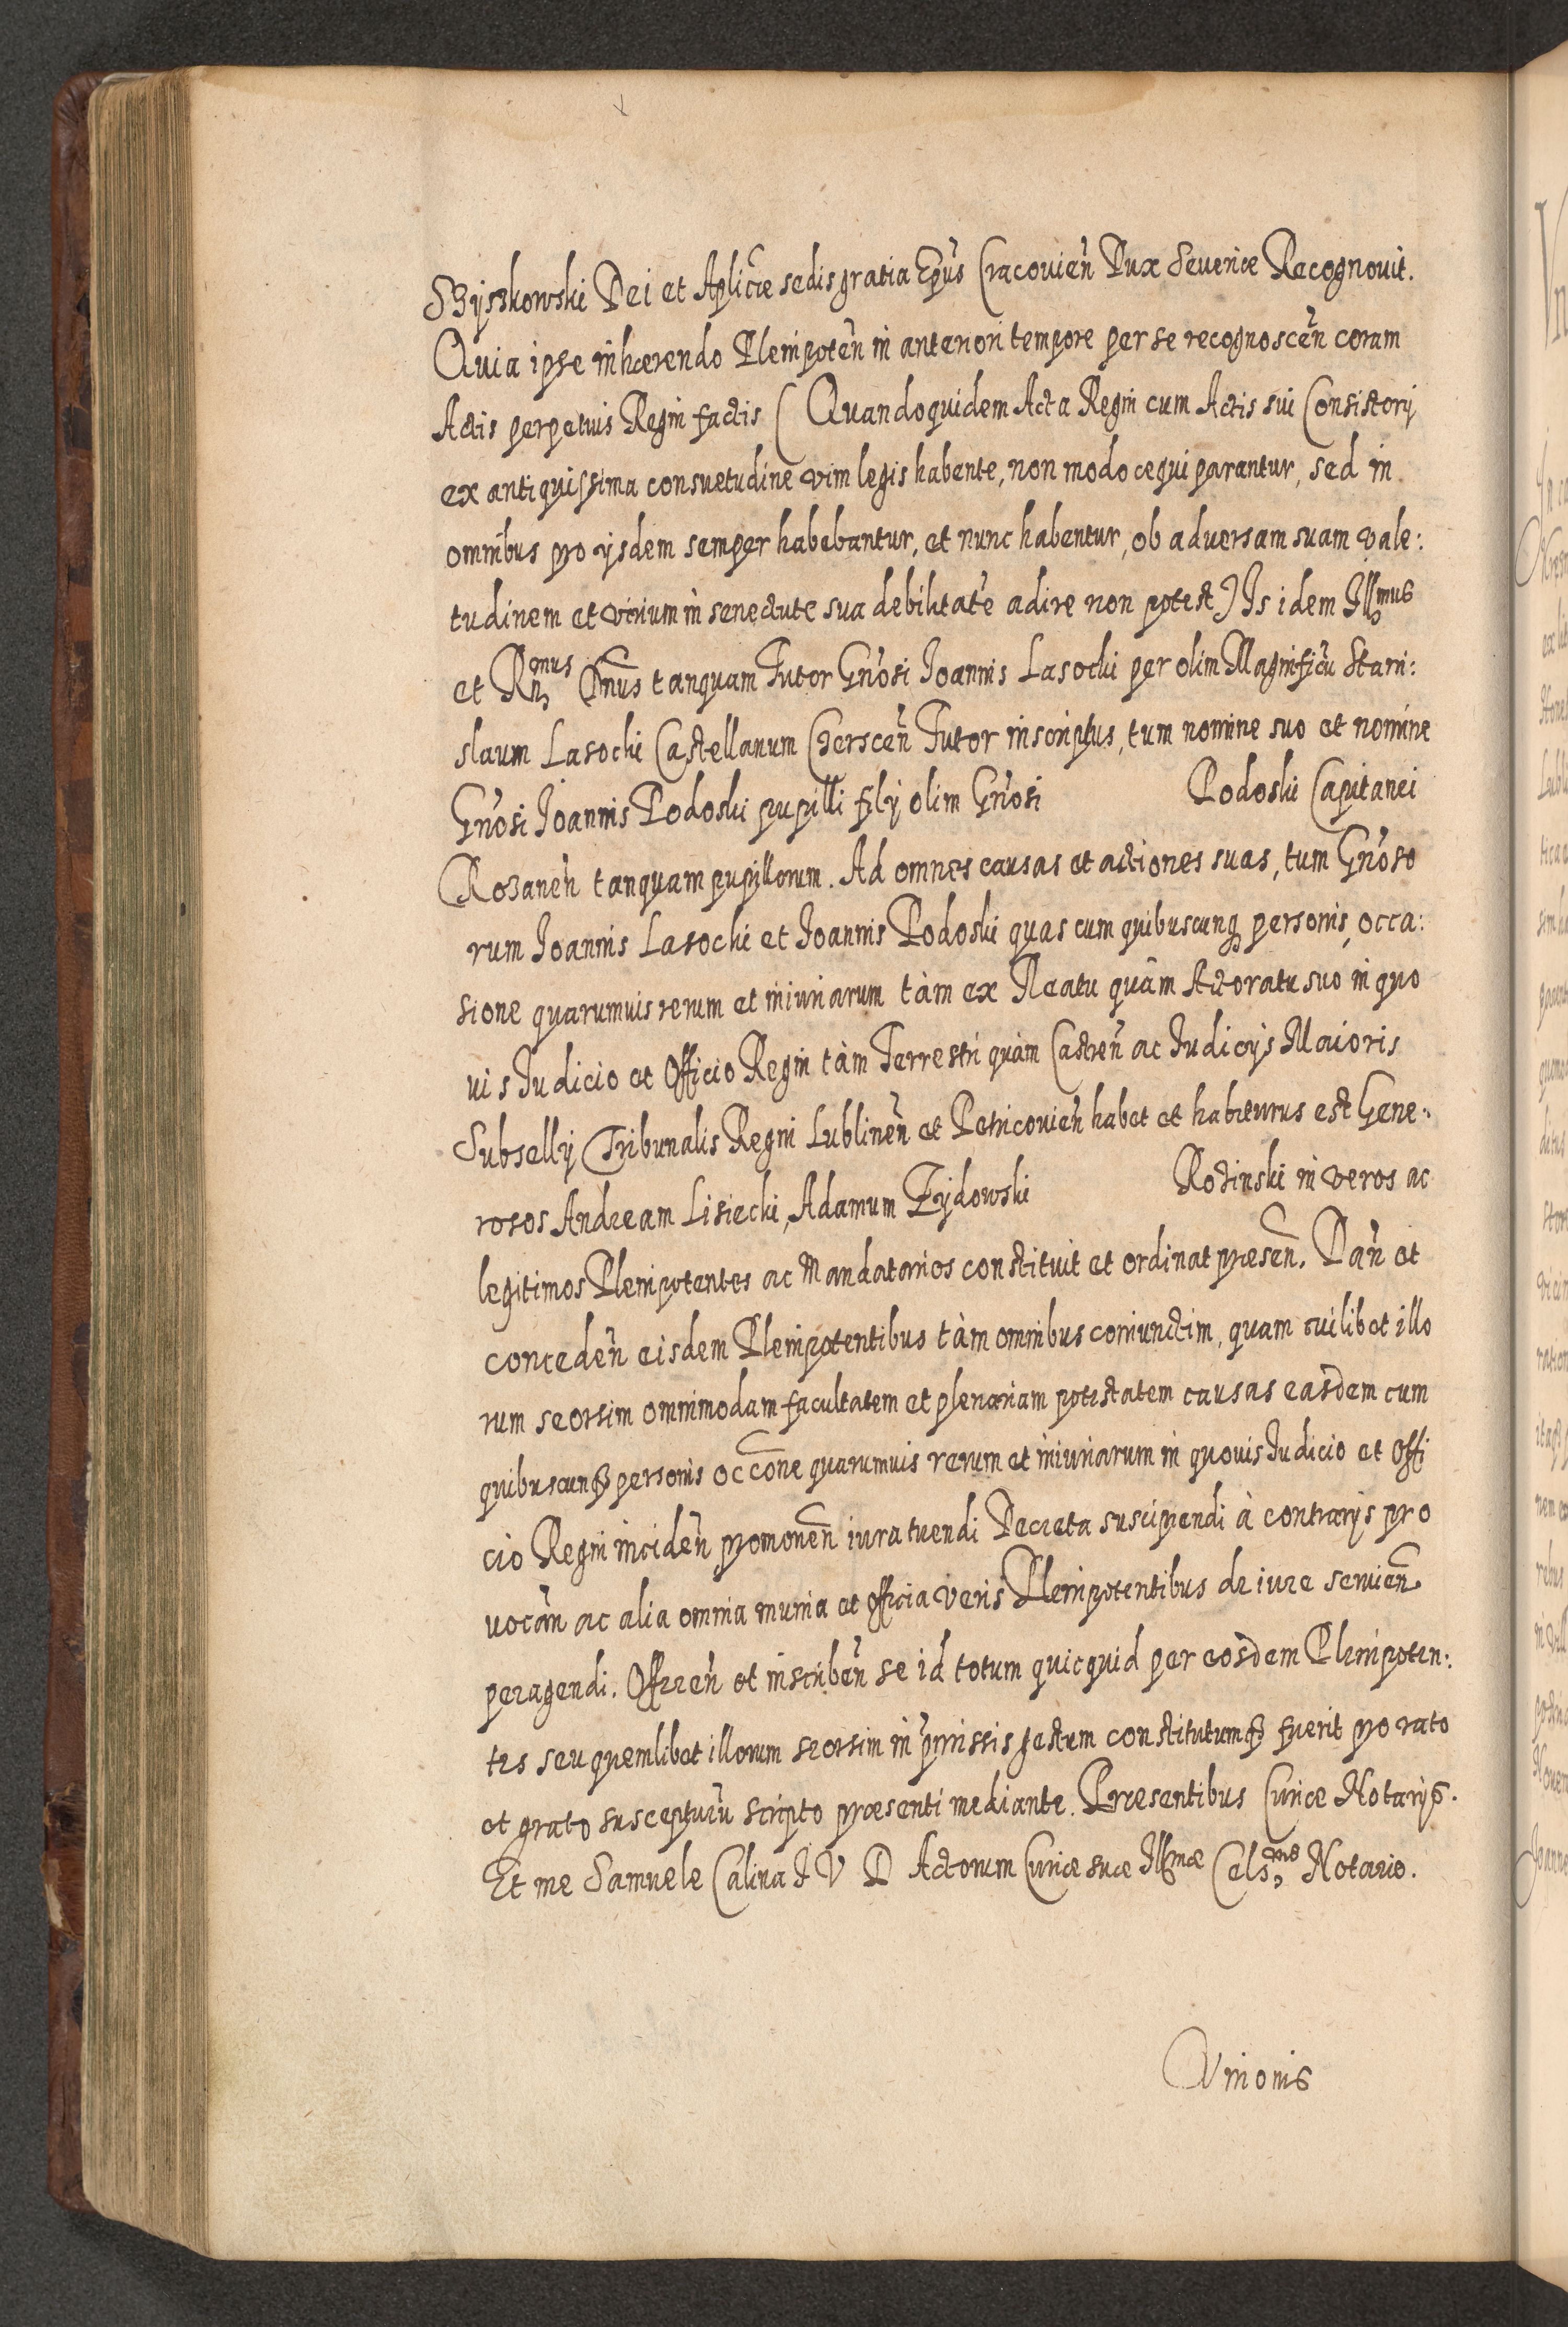 Szyszkowski Dei et Aplicæ sedis gratia Epũs Cracovien̄ Dux Severiæ Recognovit.
Quia ipse inhærendo Plenipoten̄ in anteriori tempore per se recognoscen̄ coram
Actis perpetuis Regni factis ( Quandoquidem Acta Regni cum Actis sui Consistorij
ex antiquissima consuetudine vim legis habente, non modo æquiparantur, sed in
omnibus pro ijsdem semper habebantur, et nunc habentur, ob adversam suam vale:
tudinem et virium in senectute sua debilitate adire non potest) Is idem Illmus
et Rñmus Dñus tanquam Tutor Gñosi Joannis Lasocki per olim Magnificũ Stani:
slaum Lasocki Castellanum Cierscen̄ Tutor inscriptus, tum nomine suo et nomine
Gñosi Joannis Podoski pupilli filij olim Gñosi Podoski Capitanei
Rozanen̄ tanquam pupillorum. Ad omnes causas et actiones suas, tum Gñoso
rum Joannis Lasocki et Joannis Podoski quas cum quibuscunq personis, occa:
sione quarumvis rerum et iniuriarum tàm ex Reatu quâm Actoratu suo in quo
vis Judicio et Officio Regni tàm Terrestri quàm Castren̄ ac Judicijs Maioris
Subsellij Tribunalis Regni Lublinen̄ et Petricovien̄ habet et habiturus est Gene:
rosos Andream Lisiecki, Adamum Zydowski Roctinski in veros ac
legitimos Plenipotentes ac Mandatarios constituit et ordinat præsen̄. Dan̄ et
conceden̄ eisdem Plenipotentibus tàm omnibus coniunctim, quam cuilibet illo
rum seorsim omnimodam facultatem et plenariam potestatem causas easdem cum
quibuscunq personis occõne quarumvis rerum et iniuriarum in quovis Judicio et Offi
cio Regni inciden̄ promonen̄ iura tuendi Decreta suscipiendi à contrarijs pro
vocan̄ ac alia omnia munia et officia veris Plenipotentibus de iure servien̄
peragendi. Offeren̄ et inscriben̄ se id totum quicquid per eosdem Plenipoten:
tes seu quemlibet illorum seorsim in p̃missis gestum constitutumq fuerit pro rato
et grato suscepturũ scripto præsenti mediante. Præsentibus Curiæ Notarijs.
Et me Samuele Calina J V D Actorum Curiæ suæ Illmæ Cels.mæ Notario.
Unionis